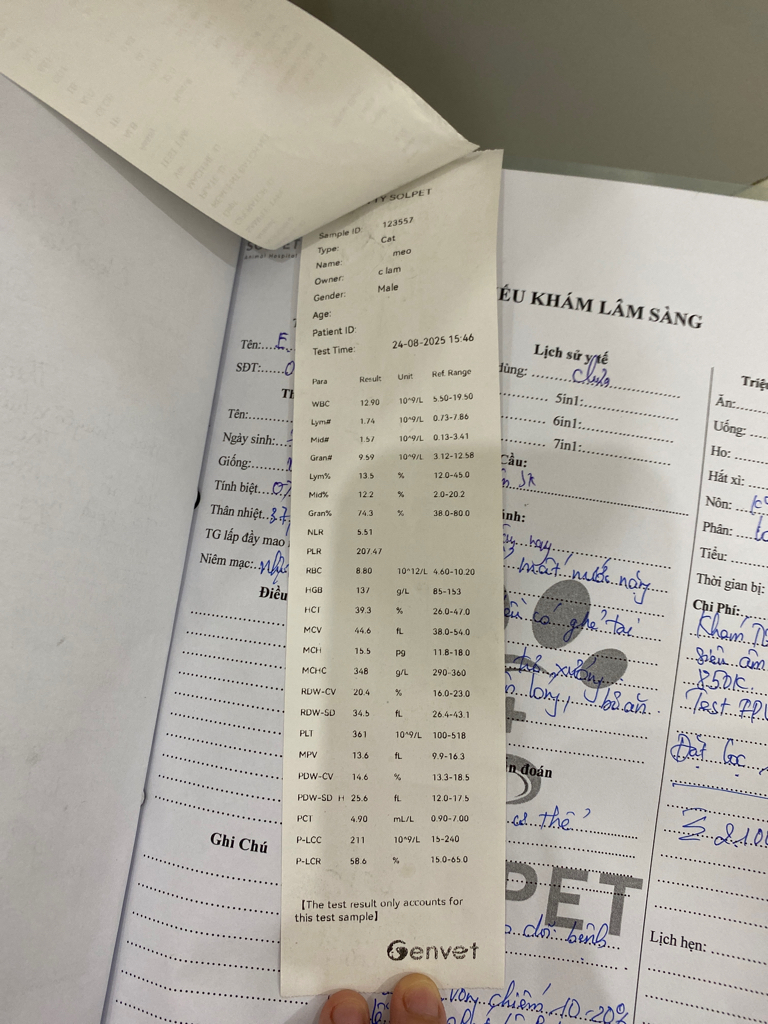 TY SOLPET
Sample ID: 123557
Type: Cat
Name: meo
Owner: c lam
Gender: Male
Age:
Patient ID:
Test Time: 24-08-2025 15:46
Para Result Unit Ref. Range
WBC 12.90 10^9/L 5.50-19.50
Lym# 1.74 10^9/L 0.73-7.86
Mid# 1.57 10^9/L 0.13-3.41
Gran# 9.59 10^9/L 3.12-12.58
Lym% 13.5 % 12.0-45.0
Mid% 12.2 % 2.0-20.2
Gran% 74.3 % 38.0-80.0
NLR 5.51
PLR 207.47
RBC 8.80 10^12/L 4.60-10.20
HGB 137 g/L 85-153
HCT 39.3 % 26.0-47.0
MCV 44.6 fL 38.0-54.0
MCH 15.5 pg 11.8-18.0
MCHC 348 g/L 290-360
RDW-CV 20.4 % 16.0-23.0
RDW-SD 34.5 fL 26.4-43.1
PLT 361 10^9/L 100-518
MPV 13.6 fL 9.9-16.3
PDW-CV 14.6 % 13.3-18.5
PDW-SD H 25.6 fL 12.0-17.5
PCT 4.90 mL/L 0.90-7.00
P-LCC 211 10^9/L 15-240
P-LCR 58.6 % 15.0-65.0
【The test result only accounts for
this test sample】
Genvet
ẾU KHÁM LÂM SÀNG
Tên:
SĐT:
Tên:
Ngày sinh:
Giống:
Tính biệt
Thân nhiệt
TG lấp đầy mao
Niêm mạc:
Điều
Ghi Chú
Lịch sử y tế
dùng: chưa
5in1:
6in1:
7in1:
Cầu:
mất nước nặng
có ghẻ tai
bỏ ăn
n đoán
cơ thể
PET
dõi bệnh
chiếm 10-20%
Triệu
Ăn:
Uống:
Ho:
Hắt xì:
Nôn:
Phân:
Tiểu:
Thời gian bị:
Chi Phí:
Khám
siêu âm
850K
Test FPV
Lịch hẹn: